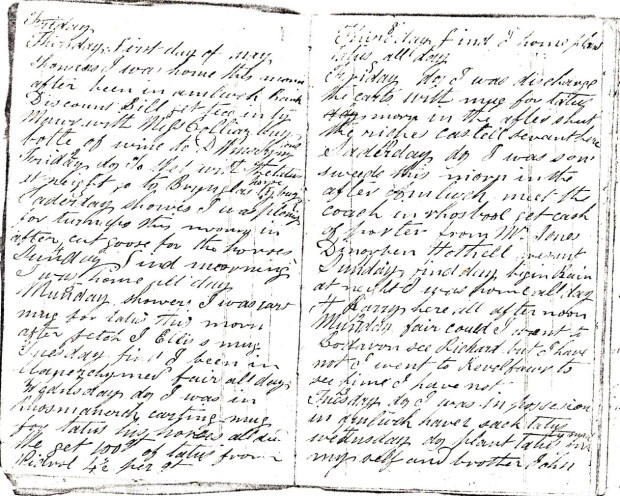 Friday
Thirsday first day of may
showers I was home this morn
after been in amlwch Bank
Discount Bill get tea in ty
Mawr with Miss Colliar buy
botle of wine to D
Friday do To Yest with
at neight go to Brynglas
Saderday showes I was
for turnips this morning in
after cut goose for the horses
Sunday find morning
I was home all day
Munday showers I was cart
mug for latus this morn
after fetch J Ellis mug
Tuesday find I been in
Llanerchymedd fair all day
Wednsday do I was in
Rhosmanerch carting mug
for latus his horses all die
he get 100st of latus from
4d per st
Thirsday find I home plant
latus all day
Fryday do I was discharge
the carts with mug for latus
morn in the after shut
the niches castell sevant here
Saderday do I was son
sweeds this morn in the
after Amlwch meet the
coach in rhosbool get cash
of porter from Mr Jones
Hothell
Sunday find day begin Rain
at neight I was home all day
H Parry here all afternoon
Munday fair could I went to
Bodwron see Richard but I have
not I went to
see hime I have not
Tuesday do I was in possesion
in amlwch haver sack latus
wedtnesday do plant latus
my self and brother John